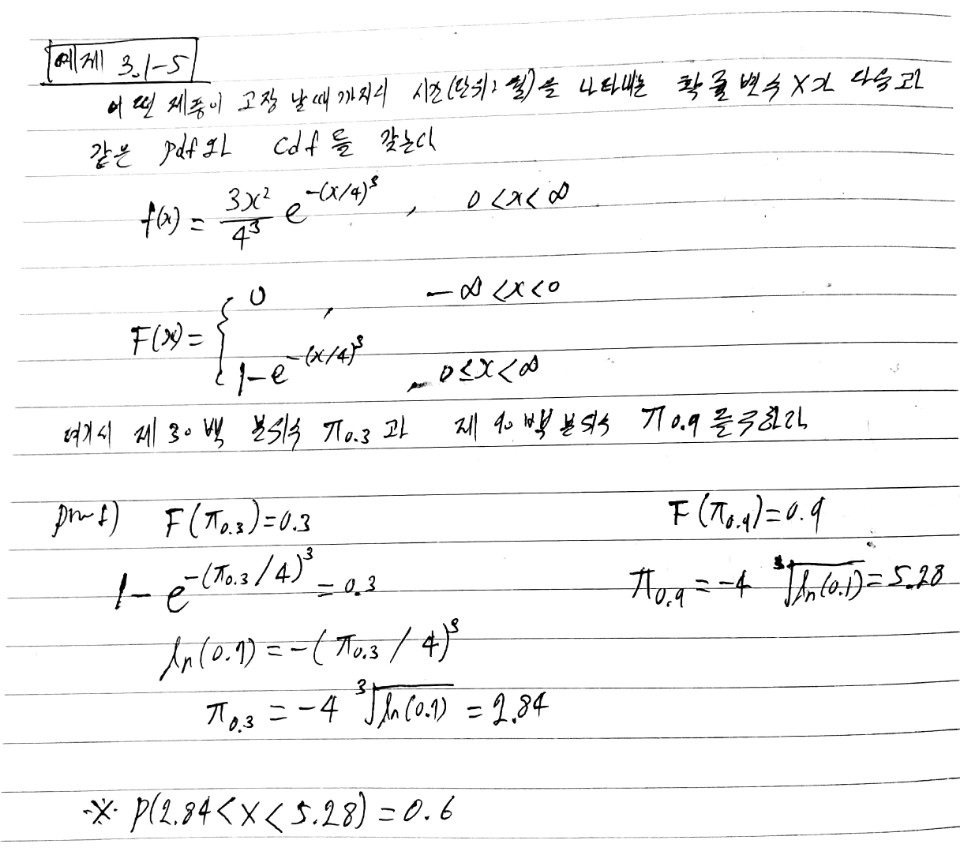 예제 3.1-5
어떤 제품이 고장 날때 까지의 시간(단위: 월)을 나타내는 확률변수 X가 다음과
같은 pdf와 cdf를 갖는다
f(x) = 3x²/4³ e^-(x/4)³ , 0<x<∞
F(x) = { 0 , -∞<x<0
1-e^-(x/4)³ , 0≤x<∞
여기서 제 30 백분위수 π0.3 과 제 90 백분위수 π0.9를 구하라
proof) F(π0.3)=0.3 F(π0.9)=0.9
1-e^-(π0.3/4)³ = 0.3 π0.9 = -4 ∛ln(0.1) = 5.28
ln(0.7) = -(π0.3/4)³
π0.3 = -4 ∛ln(0.7) = 2.84
※ P(2.84<X<5.28) = 0.6